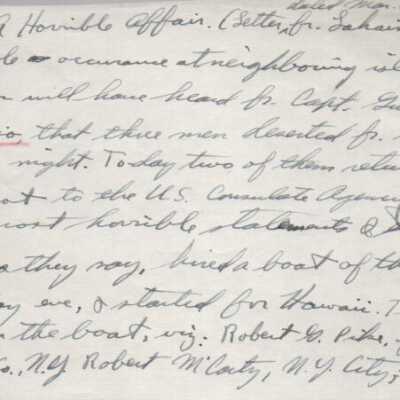 dated Mar.
A Horrible Affair. (Letter fr. Lahain
occurance at neighbouring isl
will have heard fr. Capt. Gu
that three men deserted fr.
night. Today two of them retu
to the U.S. Consulate Agency
most horrible statements of
they say, hired a boat of th
eve, & started for Hawaii. T
the boat, viz: Robert G. Pike,
Co., N.Y. Robert McCarty, N.Y. City,